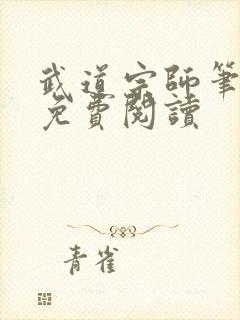 武道宗師筆
免費閱讀
青雀